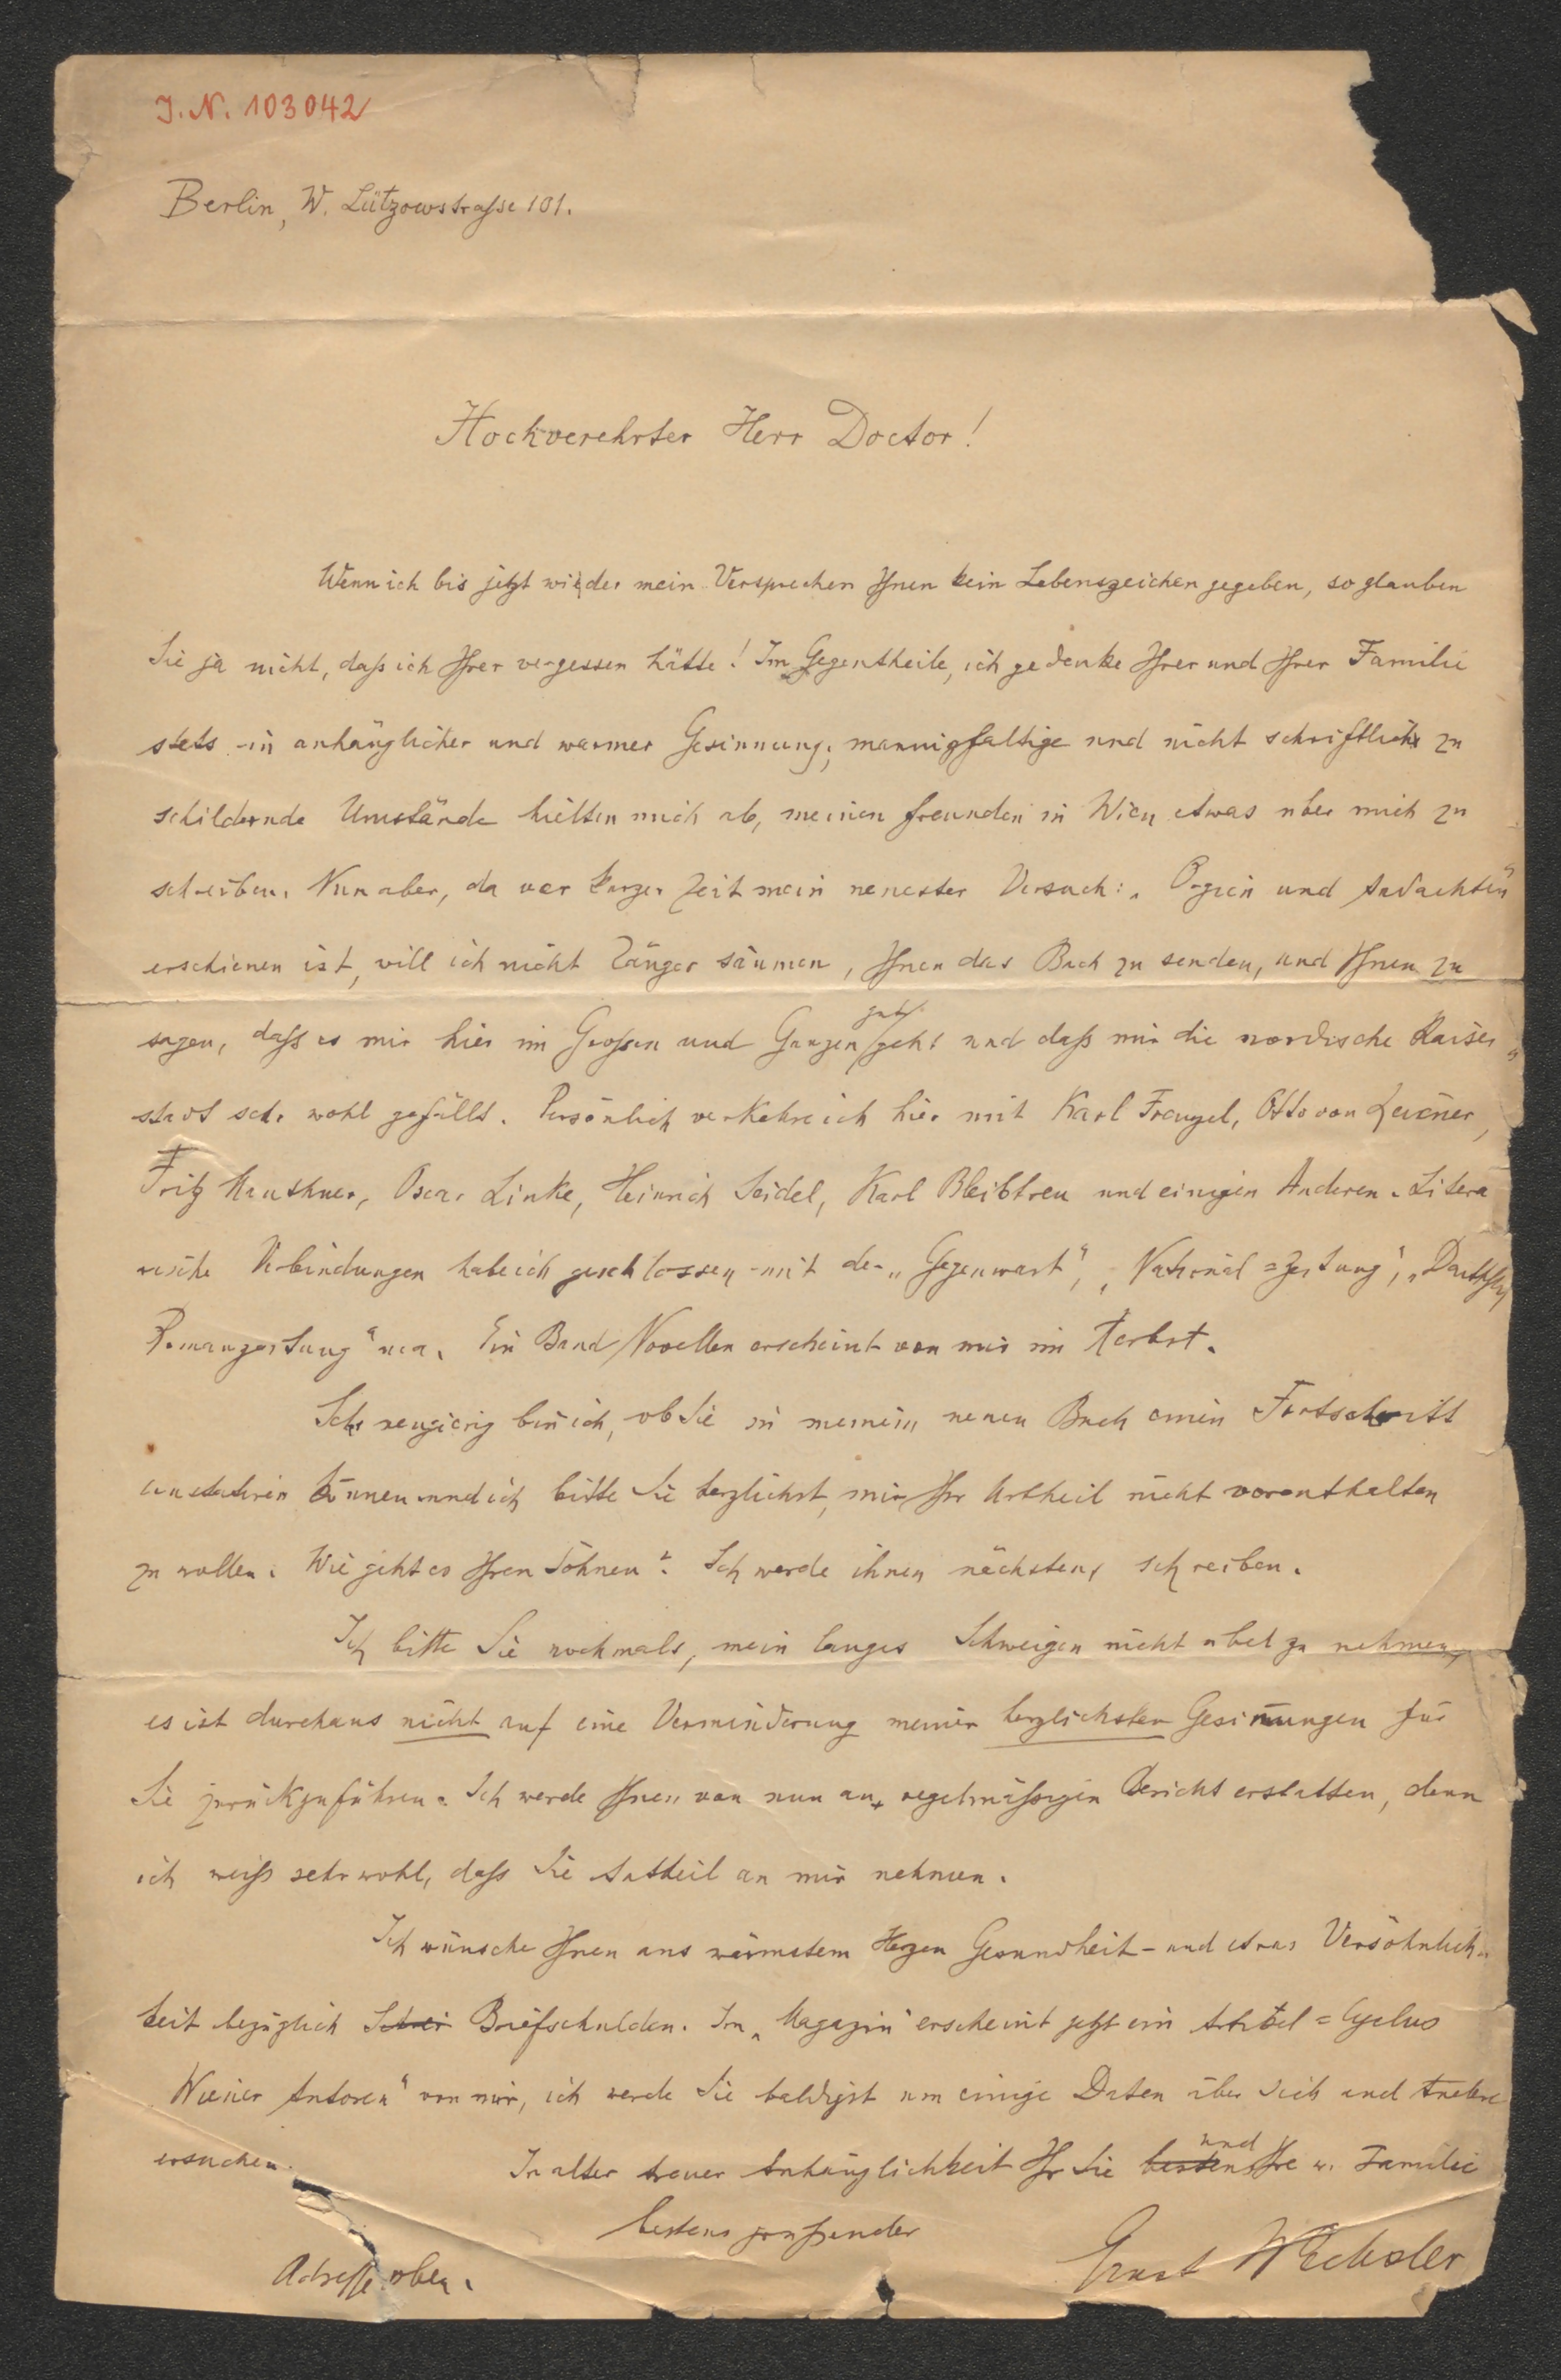 J. N. 103042
Berlin, W. Lützowstraße 101.
Hochverehrter Herr Doctor!
Wenn ich bis jetzt wider mein Versprechen Ihnen kein Lebenszeichen gegeben, so glauben
Sie ja nicht, daß ich Ihrer vergessen hätte! Im Gegentheile, ich gedenke Ihrer und Ihrer Familie
stets in anhänglicher und warmer Gesinnung; mannigfaltige und nicht schriftlich zu
schildernde Umstände hielten mich ab, meinen Freunden in Wien etwas über mich zu
schreiben. Nun aber, da vor kurzer Zeit mein neuester Versuch: „Orgien und Andachten“
erschienen ist, will ich nicht länger säumen, Ihnen das Buch zu senden, und Ihnen zu
sagen, daß es mir hier im Großen und Ganzen gut geht und daß mir die nordische Kaiser-
stadt sehr wohl gefällt. Persönlich verkehre ich hier mit Karl Frenzel, Otto von Leixner,
Fritz Mauthner, Oscar Linke, Heinrich Seidel, Karl Bleibtreu und einigen Anderen. Litera
rische Verbindungen habe ich geschlossen mit der „Gegenwart“, „National=Zeitung“, „Deutschen
Romanzeitung“ u. a. Ein Band Novellen erscheint von mir im Herbst.
Sehr neugierig bin ich, ob Sie in meinem neuen Buch einen Fortschritt
constatiren können und ich bitte Sie herzlichst, mir Ihr Urtheil nicht vorenthalten
zu wollen. Wie geht es Ihren Söhnen? Ich werde ihnen nächstens schreiben.
Ich bitte Sie nochmals, mein langes Schweigen nicht übel zu nehmen,
es ist durchaus nicht auf eine Verminderung meiner herzlichsten Gesinnungen für
Sie zurückzuführen. Ich werde Ihnen von nun an regelmäßigen Bericht erstatten, denn
ich weiß sehr wohl, daß Sie Antheil an mir nehmen.
Ich wünsche Ihnen aus wärmstem Herzen Gesundheit - und etwas Versöhnlich-
keit bezüglich Briefschulden. Im „Magazin“ erscheint jetzt ein Artikel=Cyclus
„Wiener Autoren“ von mir, ich werde Sie baldigst um einige Daten über Sich und Andere
ersuchen.
In alter treuer Anhänglichkeit Ihr Sie und Ihre w. Familie
bestens grüßender
Ernst Wechsler
Adresse oben.